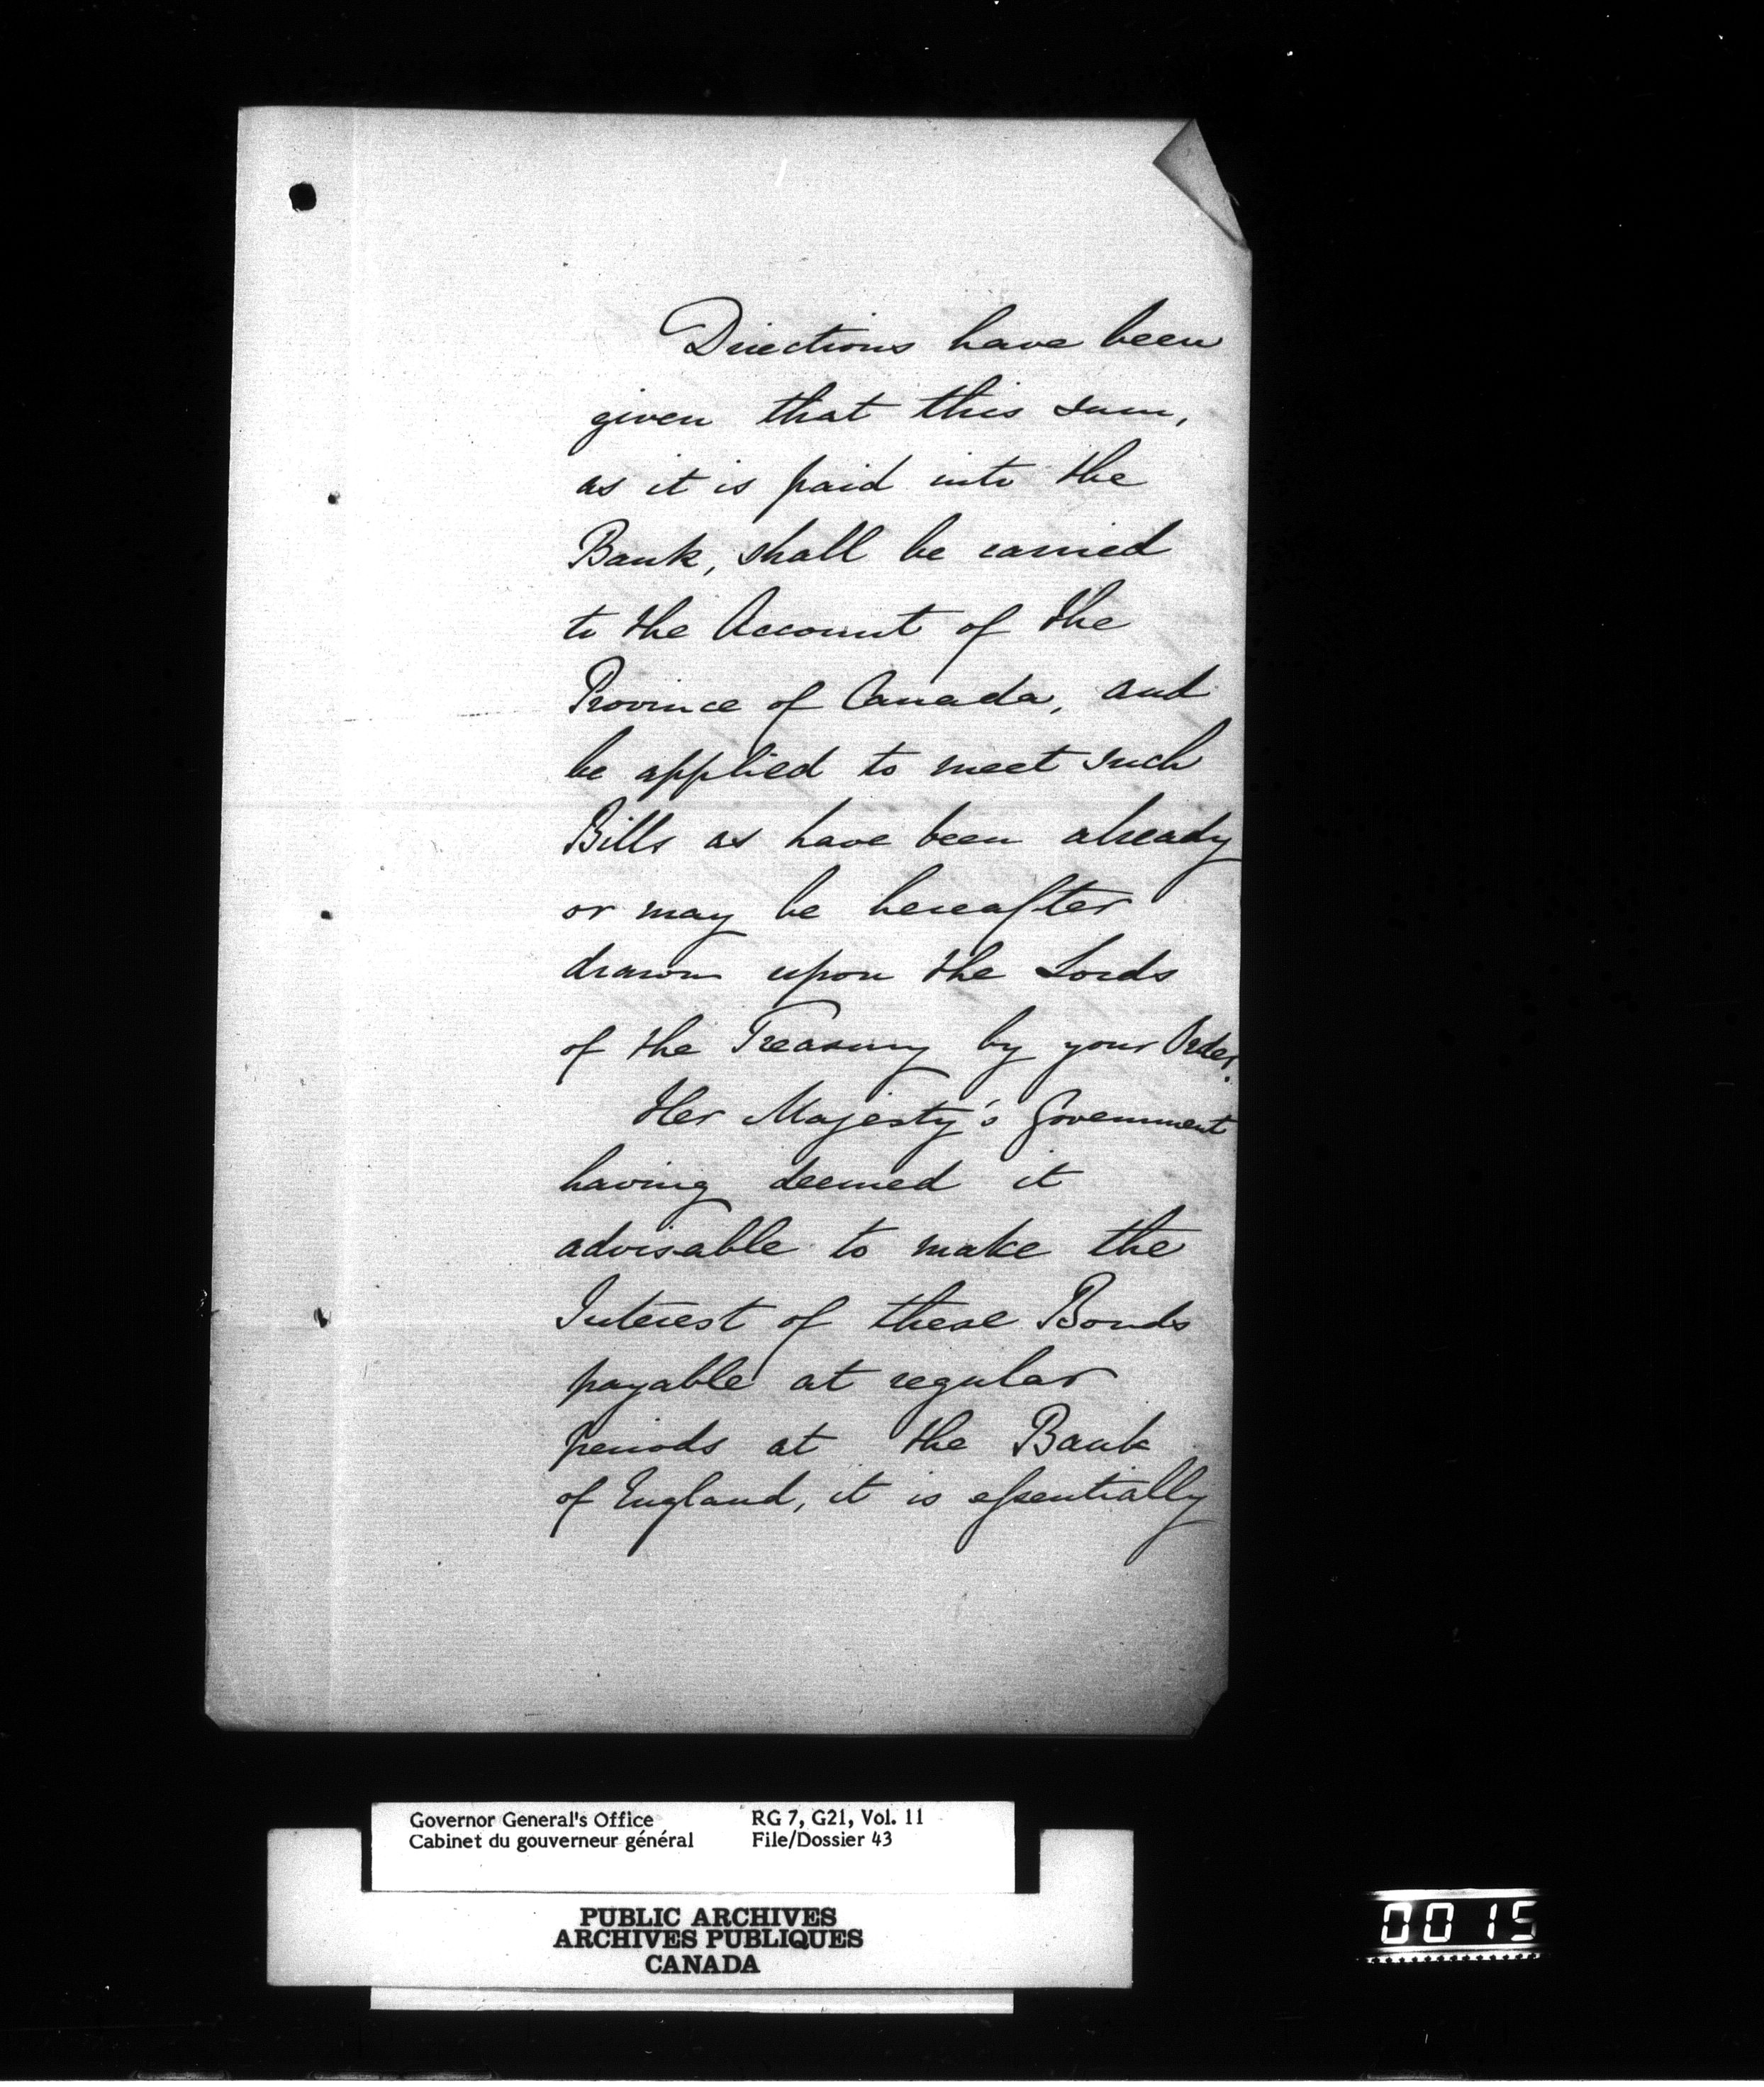 Directions have been
given that this sum,
as it is paid into the
Bank, shall be carried
to the Account of the
Province of Canada, and
be applied to meet such
Bills as have been already
or may be hereafter
drawn upon the Lords
of the Treasury by your Order.
Her Majesty's Government
having deemed it
advisable to make the
Interest of these Bonds
payable at regular
periods at the Bank
of England, it is eſsentially
Governor General's Office RG 7, G21, Vol. 11
Cabinet du gouverneur général File/Dossier 43
PUBLIC ARCHIVES
ARCHIVES PUBLIQUES
CANADA
0015